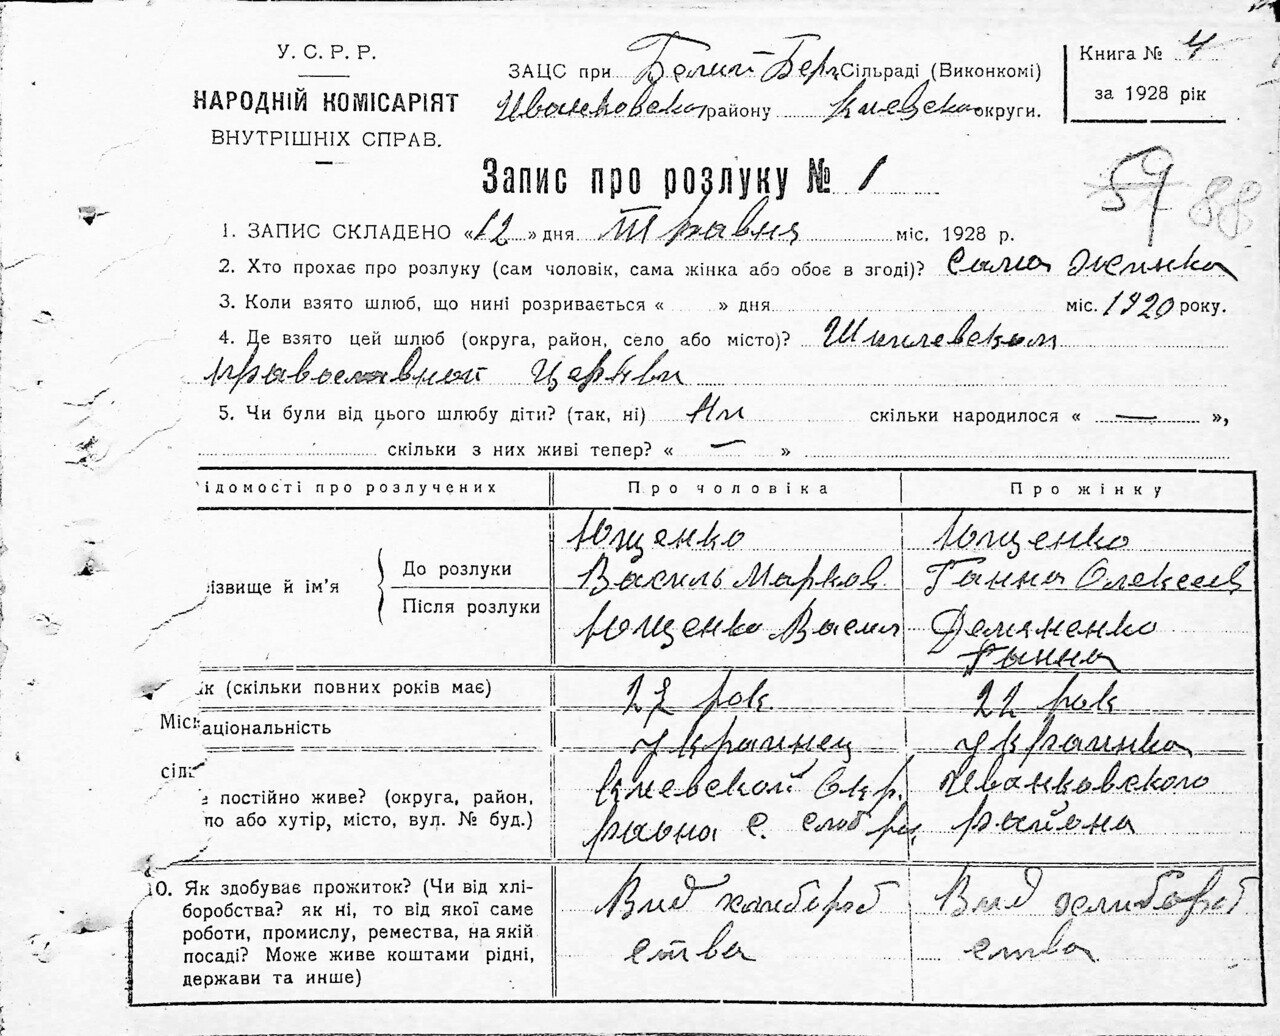 У. С. Р. Р.
НАРОДНІЙ КОМІСАРІЯТ
ВНУТРІШНІХ СПРАВ.
ЗАЦС при Белий-Бер. Сільраді (Виконкомі)
Иванковско району Киевско округи.
Книга № 4
за 1928 рік
Запис про розлуку № 1
59 88
1. ЗАПИС СКЛАДЕНО «12» дня Травня міс. 1928 р.
2. Хто прохає про розлуку (сам чоловік, сама жінка або обоє в згоді)? Сама жинка
3. Коли взято шлюб, що нині розривається « » дня міс. 1920 року.
4. Де взято цей шлюб (округа, район, село або місто)?
православной Церкви
5. Чи були від цього шлюбу діти? (так, ні) Ни скільки народилося « — »,
скільки з них живі тепер? « — »
ідомості про розлучених Про чоловіка Про жінку
ізвище й ім'я
До розлуки
Ющенко
Василь Марков
Ющенко
Ганна Олексеев
Після розлуки
Ющенко Васил
Демяненко
Ганна
ік (скільки повних років має) 22 рок. 22 рок
аціональність Украинец Украинка
Міс
сіл
е постійно живе? (округа, район,
ло або хутір, місто, вул. № буд.)
Киевской Окр. Иванковского
раиона с. района
10. Як здобуває прожиток? (Чи від хлі-
боробства? як ні, то від якої саме
роботи, промислу, ремества, на якій
посаді? Може живе коштами рідні,
держави та инше)
Вид хлибороб
ства
Вид хлибороб
ства